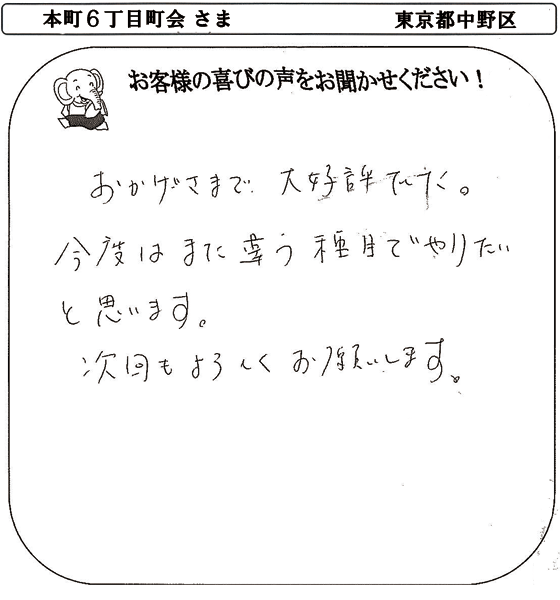 本町６丁目町会 さま 東京都中野区
お客様の喜びの声をお聞かせください！
おかげさまで 大好評でした。
今度は また 違う 種目でやりたい
と 思います。
次回も よろしく お願いします。